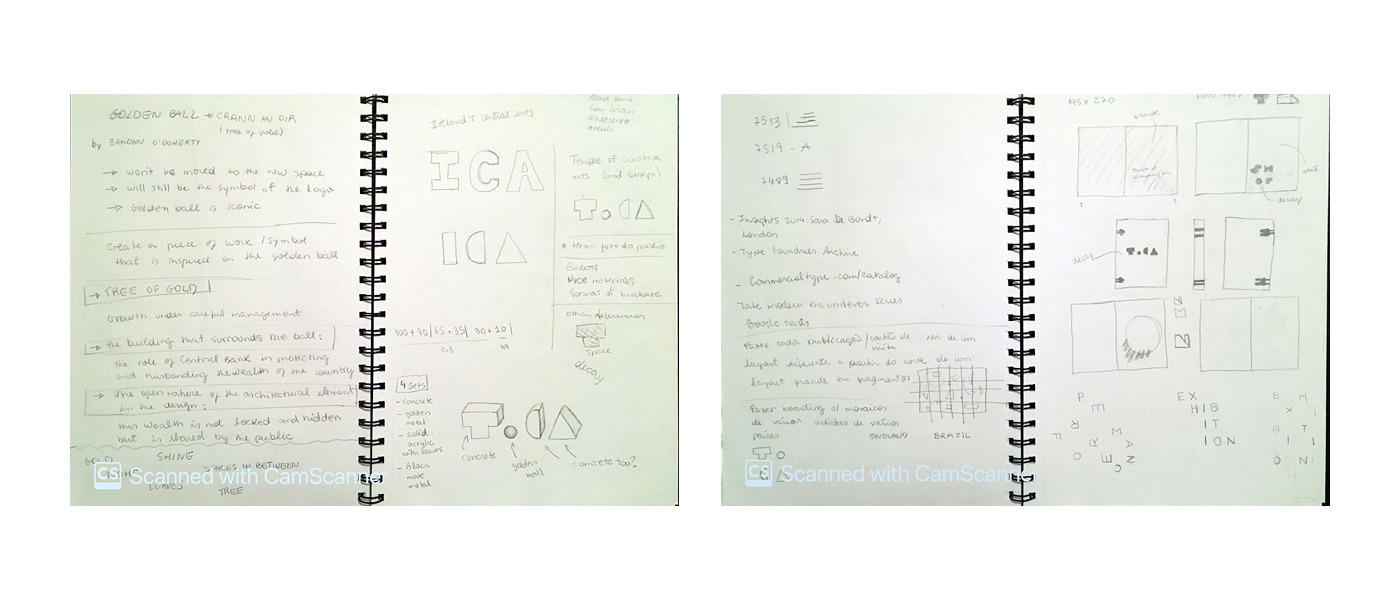 GOLDEN BALL → CRANN AN OIR
(tree of gold)
by EAMONN O'DOHERTY
→ won't be moved to the new space
→ will still be the symbol of the logo
→ Golden ball is iconic
Create a piece of work / symbol
that is inspired on the golden ball
→ TREE OF GOLD
Growth under careful management
→ the building that surrounds the ball:
the role of Central Bank in protecting
and husbanding the wealth of the country
→ The open nature of the architectural element
in the design:
this wealth is not locked and hidden
but is shared by the public
GOLD
SHINE
SPACES IN BETWEEN
LEAVES
TREE
CS Scanned with CamScanner
Ireland's Central Arts
ICA
ICA
100 + 90 | 65 = 35 | 30 + 20 |
4 sets
- concrete
- golden metal
- solid acrylic with leaves
- Black matte metal
T.CA
concrete
golden ball
concrete too?
Temple of creative
arts (and design)
T.CA
* tirar foto do prédio
Emboss
Nice materials
format of brochure
other references
space
decay
7513
7519 - A
7489
- Insights 2014: Sara De Bondt,
London
- Type Foundries Archive
- Commercialtype.com/catalog
Tate modern the unilever series
Fazer cada publicação / cartão de
visita
ser de um
layout diferente a partir do cover de um
layout grande em fragmentos
Fazer hoarding c/ mosaicos
de vários artistas de vários
países
ENGLAND BRAZIL
CS Scanned with CamScanner
195 x 270
black
1
2
SH
OP
decay
decay
T.CA
N
EX
HIB
IT
ION